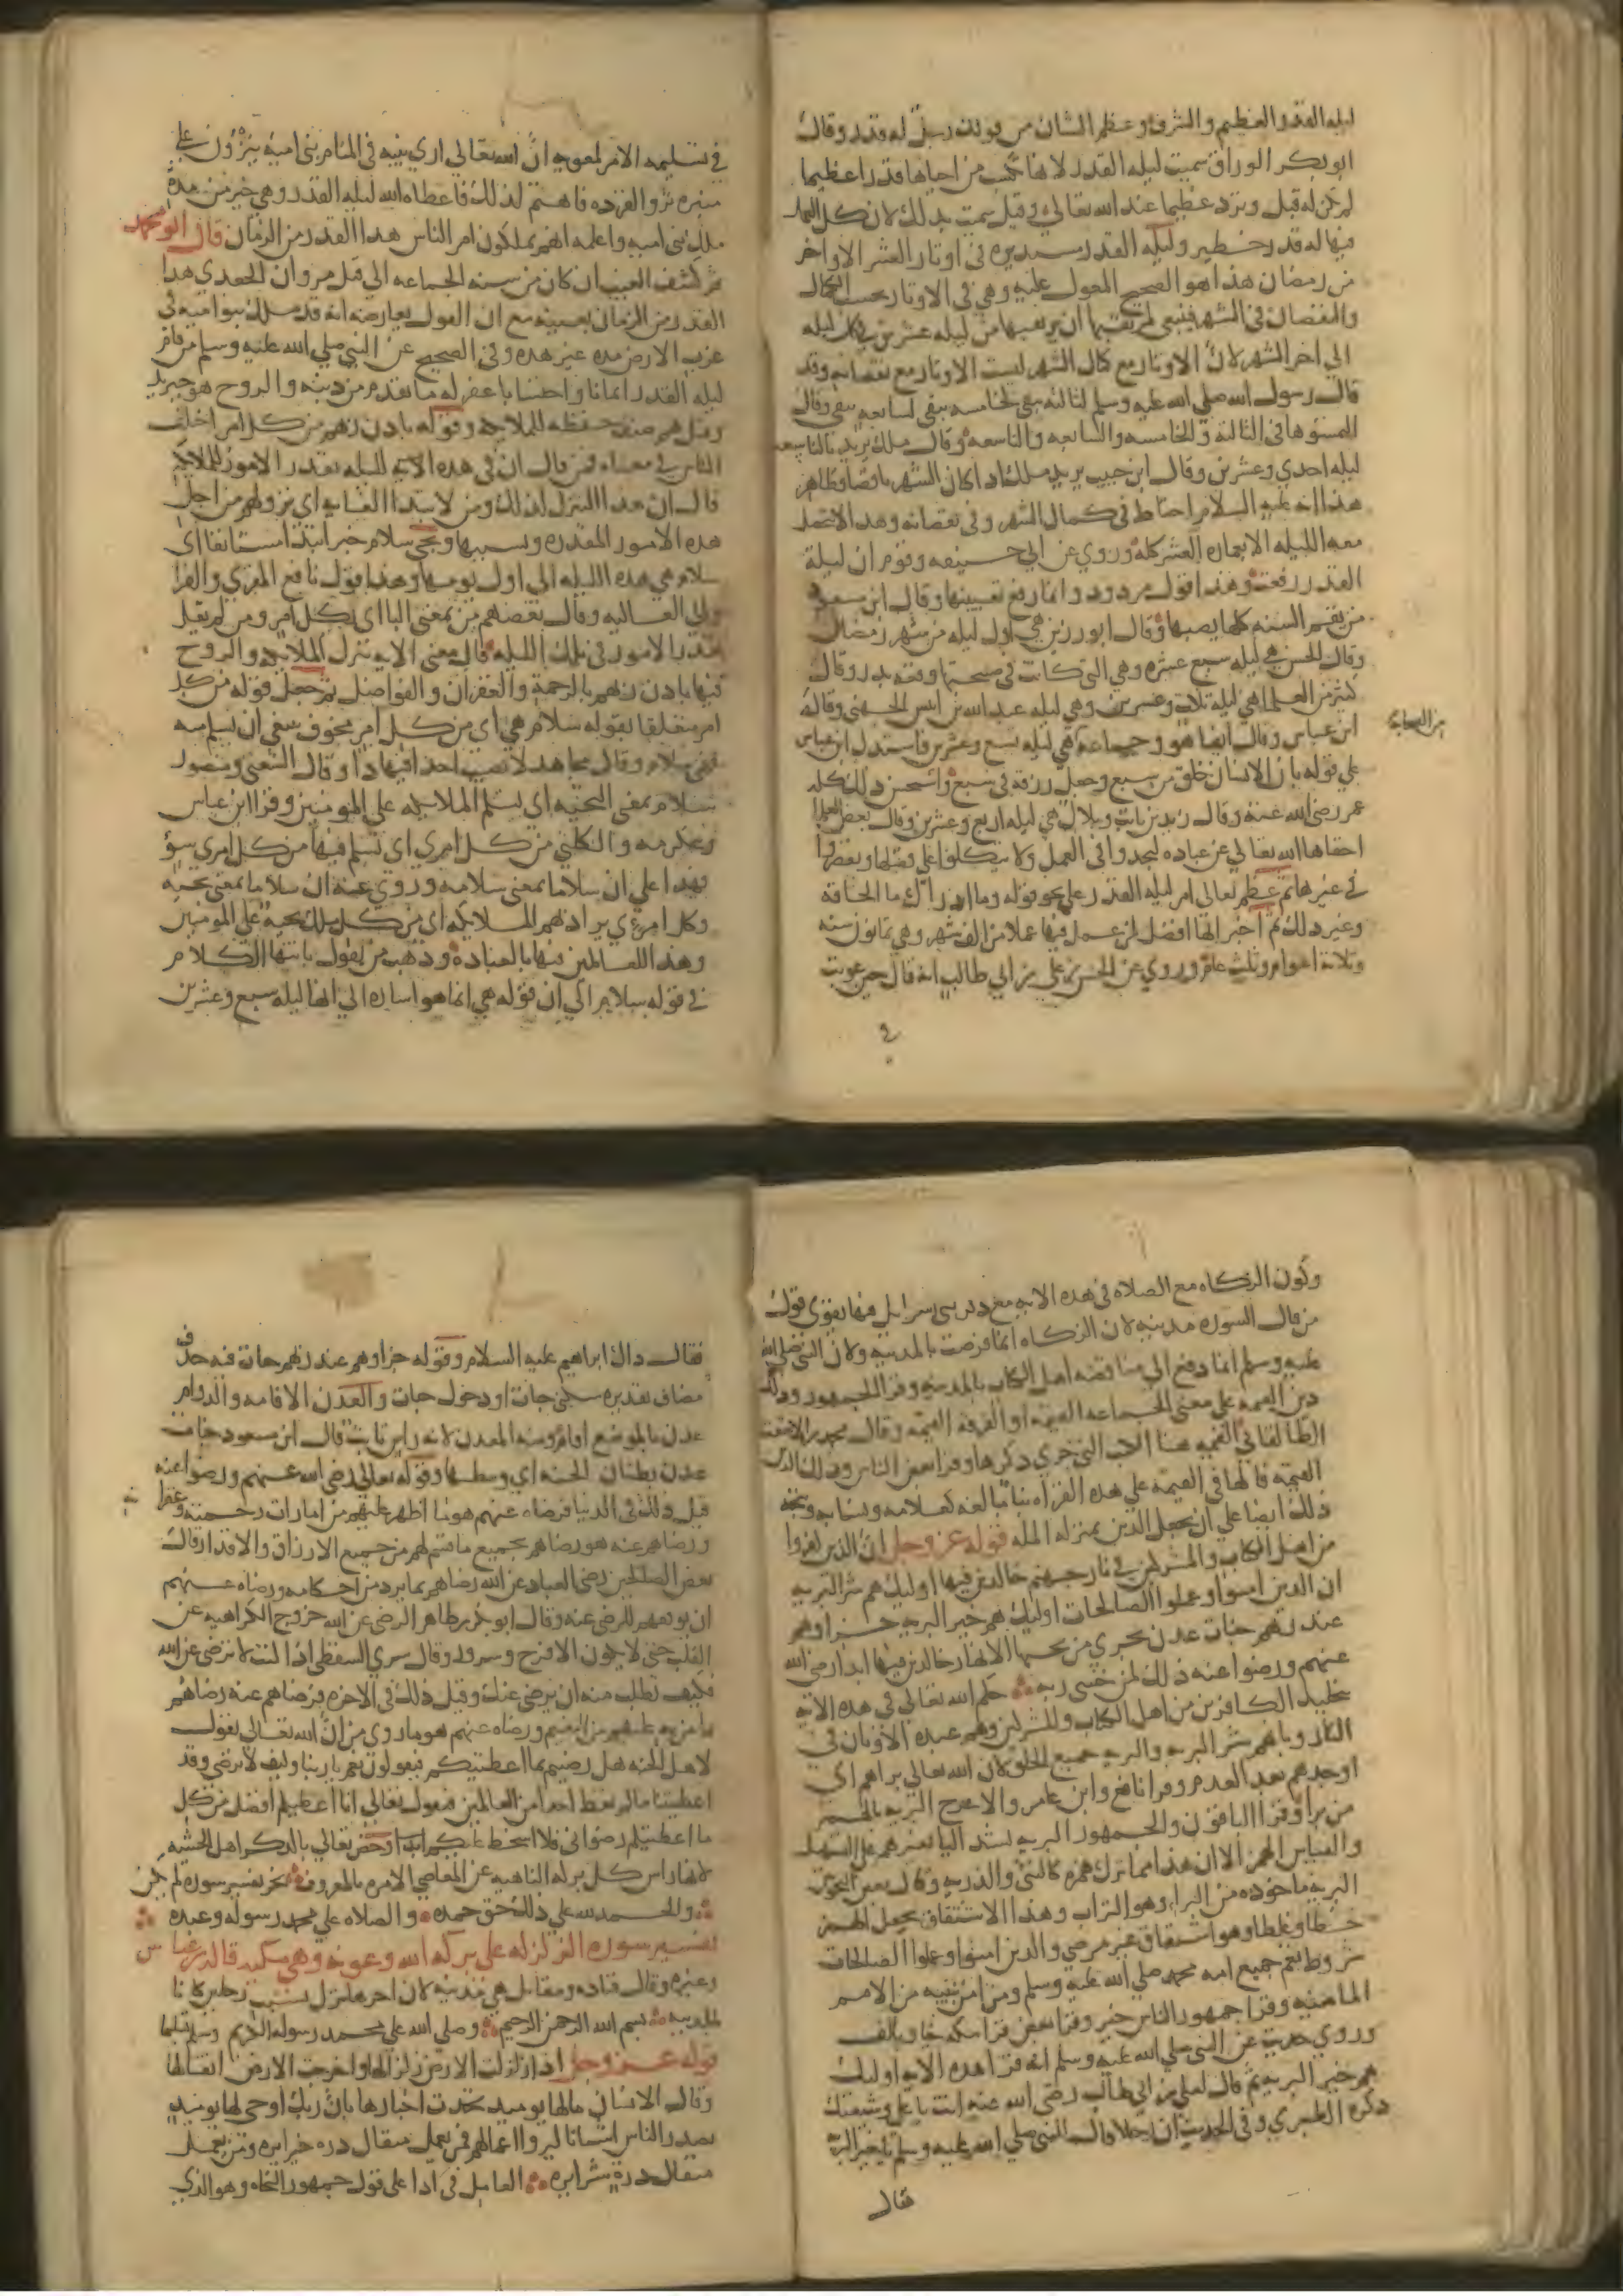 ليله القدر العظيم والشرف وعظم الشان من قولك رجل له قدر وقال
ابو بكر الوراق سميت ليله القدر لانها تكسب من احياها قدرا عظيما
لم يكن له قبل وتزده عظيما عند الله تعالى وقيل سميت بذلك لان كل العمل
فيها له قدر وخطير وليله القدر مستديره في اوتار العشر الاواخر
من رمضان هذا هو الصحيح المعول عليه وهي في الاوتار بحسب الكمال
والنقصان في الشهر فينبغي لمرتقبها ان يرتقبها من ليله عشرين في كل ليله
الى اخر الشهر لان الاوتار مع كمال الشهر ليست الاوتار مع نقصانه وقد
قال رسول الله صلى الله عليه وسلم لثالثه تبقى لخامسه تبقى لسابعه تبقى وقال
التمسوها في الثالثه والخامسه والسابعه والتاسعه وقال ملك يريد بالتاسعه
ليله احدى وعشرين وقال ابن حبيب يريد ملك اذا كان الشهر ناقصا وظاهر
هذا انه عليه السلام احتاط في كمال الشهر وفي نقصانه وهذا لا تتحصل
معه الليله الا بعماره العشر كله وروي عن ابي حنيفه وقوم ان ليلة
القدر رفعت وهذا قول مردود وانما رفع تعيينها وقال ابن مسعود
من يقم السنه كلها يصبها وقال ابو رزين هي اول ليله من شهر رمضان
وقال الحسن هي ليله سبع عشره وهي التي كانت في صبيحتها وقعه بدر وقال
كثير من العلما هي ليلة ثلاث وعشرين وهي ليله عبد الله بن انيس الجهني وقاله
ابن عباس وقال ايضا هو وجماعه هي ليله سبع وعشرين فاستدل ابن عباس
من الصحابة
على قوله بان الانسان خلق من سبع وجعل رزقه في سبع واستحسن ذلك كله
عمر رضي الله عنه وقال زيد بن ثابت وبلال هي ليله اربع وعشرين وقال بعض العلما
اخفاها الله تعالى عن عباده ليجدوا في العمل ولا يتكلوا على فضلها ويقصروا
في غيرها ثم عظم تعالى امر ليله القدر على نحو قوله وما ادراك ما الحاقة
وغير ذلك ثم اخبر انها افضل لمن عمل فيها عملا من الف شهر وهي ثمانون سنه
وثلاثة اعوام وثلث عام وروي عن الحسن بن علي بن ابي طالب انه قال حين عوتب
في
في تسليمه الامر لمعويه ان الله تعالى ارى نبيه في المنام بني اميه ينزون على
منبره نزو القرده فاهتم لذلك فاعطاه الله ليله القدر وهي خير من مدة
ملك بني اميه واعلمه انهم يملكون امر الناس هذا القدر من الزمان قال ابو محمد
ثم كشف الغيب ان كان من سنه الجماعه الى قتل مروان الجعدي هذا
القدر من الزمان بعينه مع ان القول يعارضه انه قد ملك بنو اميه في
غرب الارض مده غير هذه وفي الصحيح عن النبي صلى الله عليه وسلم من قام
ليله القدر ايمانا واحتسابا غفر له ما تقدم من ذنبه والروح هو جبريل
وقيل هم صنف حفظه للملايكه وقوله باذن ربهم من كل امر اختلف
الناس في معناه فمن قال ان في هذه الايه الليله تقدر الامور للملايكة
قال ان هذا التنزل لذلك ومن لابتداء الغايه اي نزولهم من اجل
هذه الامور المقدره وبسببها ويجي سلام خبر ابتدا مستانفا اي
سلام هي هذه الليله الى اول يومها وهذا قول نافع المقري والفرا
وابي العاليه وقال بعضهم من بمعنى البا اي بكل امر ومن لم يقل
بقدر الامور في تلك الليله قال معنى الايه تنزل الملايكه والروح
فيها باذن ربهم بالرحمة والغفران والفواضل ثم جعل قوله من كل
امر متعلقا بقوله سلام هي اي من كل امر مخوف ينبغي ان يسلم منه
فهي سلام وقال مجاهد لا تصيب احدا فيها داء وقال الشعبي ومنصور
سلام بمعنى التحيه اي تسلم الملايكه على المومنين وقرا ابن عباس
وعكرمه والكلبي من كل امرى اي تسلم فيها من كل امرى سوء
فهذا على ان سلاما بمعنى سلامه وروي عنه ان سلاما بمعنى تحيه
وكل امرى يراد بهم الملايكه اي من كل ملك تحية على المومنين
وهذا للعاملين فيها بالعبادة وذهب من يقول بانتها الكلام
في قوله سلام الى ان قوله هي انما هو اشاره الى انها ليله سبع وعشرين
وكون الزكاه مع الصلاه في هذه الايه مع ذكر بني اسرايل فيها يقوي قول
من قال السوره مدنيه لان الزكاه انما فرضت بالمدينه ولان النبي صلى الله
عليه وسلم انما دفع الى مناقضه اهل الكتاب بالمدينه وقرا الجمهور وذلك
دين القيمه على معنى الجماعه القيمه او الفرقه القيمه وقال محمد بن الاشعث
الطالقاني القيمه هنا الكتب التي جرى ذكرها وقرا بعض الناس وذلك الدين
القيمه فالها في القيمه على هذه القراه بنا مبالغه كعلامه ونسابه ويتجه
ذلك ايضا على ان يجعل الدين بمنزله المله قوله عز وجل ان الذين كفروا
من اهل الكتاب والمشركين في نار جهنم خالدين فيها اوليك هم شر البريه
ان الذين امنوا وعملوا الصالحات اوليك هم خير البريه جزاوهم
عند ربهم جنات عدن تجري من تحتها الانهار خالدين فيها ابدا رضي الله
عنهم ورضوا عنه ذلك لمن خشي ربه حكم الله تعالى في هذه الايه
بتخليد الكافرين من اهل الكتاب والمشركين وهم عبده الاوثان في
النار وبانهم شر البريه والبريه جميع الخلق لان الله تعالى براهم اي
اوجدهم بعد العدم وقرا نافع وابن عامر والاعرج البريه بالهمز
من برا وقرا الباقون والجمهور البريه بشد اليا بغير همز على التسهيل
والقياس الهمز الا ان هذا مما ترك همزه كالنبي والذريه وقال بعض النحويين
البريه ماخوذه من البرا وهو التراب وهذا الاشتقاق يجعل الهمز
خطا وغلطا وهو اشتقاق غير مرضي والذين امنوا وعملوا الصالحات
شروط تعم جميع امه محمد صلى الله عليه وسلم ومن امن بنبيه من الامم
الماضيه وقرا جمهور الناس خير وقرا بعض قرا مكه خيار بالف
وروي حديث عن النبي صلى الله عليه وسلم انه قرا هذه الايه اوليك
هم خير البريه ثم قال لعلي بن ابي طالب رضي الله عنه انت يا علي وشيعتك
ذكره الطبري وفي الحديث ان رجلا قال للنبي صلى الله عليه وسلم يا خير البريه
قال
فقال ذاك ابراهيم عليه السلام وقوله جزاوهم عند ربهم جنات فيه حذف
مضاف تقديره سكنى جنات او دخول جنات والعدن الاقامه والدوام
عدن بالموضع اقام ومنه المعدن لانه راس ثابت قال ابن مسعود جنات
عدن بطنان الجنه اي وسطها وقوله تعالى رضي الله عنهم ورضوا عنه
قيل ذلك في الدنيا فرضاه عنهم هو ما اظهر عليهم من امارات رحمته وغفرا
نه
ورضاهم عنه هو رضاهم بجميع ما قسم لهم من جميع الارزاق والاقدار قال
بعض الصالحين رضى العباد عن الله رضاهم بما يرد من احكامه ورضاه عنهم
ان يوفقهم للرضى عنه وقال ابو بكر بن طاهر الرضى عن الله خروج الكراهيه عن
القلب حتى لا يكون الا فرح وسرور وقال سري السقطي اذا كنت لا ترضى عن الله
فكيف تطلب منه ان يرضى عنك وقيل ذلك في الاخره فرضاهم عنه رضاهم
بما من به عليهم من النعيم ورضاه عنهم هو ما روي من ان الله تعالى يقول
لاهل الجنه هل رضيتم بما اعطيتكم فيقولون نعم يا ربنا وكيف لا نرضى وقد
اعطيتنا ما لم تعط احدا من العالمين فيقول تعالى انا اعطيكم افضل من كل
ما اعطيتكم رضواني فلا اسخط عليكم ابدا وخص تعالى بالذكر اهل الخشيه
لانها راس كل بركه الناهيه عن المعاصي الامره بالمعروف نجز تفسير سوره لم يكن
والحمد لله على ذلك حق حمده والصلاه على محمد رسوله وعبده
تفسير سوره الزلزله على بركه الله وعونه وهي مكيه قاله ابن عباس
وغيره وقال قتاده ومقاتل هي مدنيه لان اخرها نزل بسبب رجلين كانا
بالمدينه بسم الله الرحمن الرحيم وصلى الله على محمد رسوله الكريم وسلم تسليما
قوله عز وجل اذا زلزلت الارض زلزالها واخرجت الارض اثقالها
وقال الانسان مالها يوميذ تحدث اخبارها بان ربك اوحى لها يوميذ
يصدر الناس اشتاتا ليروا اعمالهم فمن يعمل مثقال ذره خيرا يره ومن يعمل
مثقال ذرة شرا يره العامل في اذا على قول جمهور النحاه وهو الذي